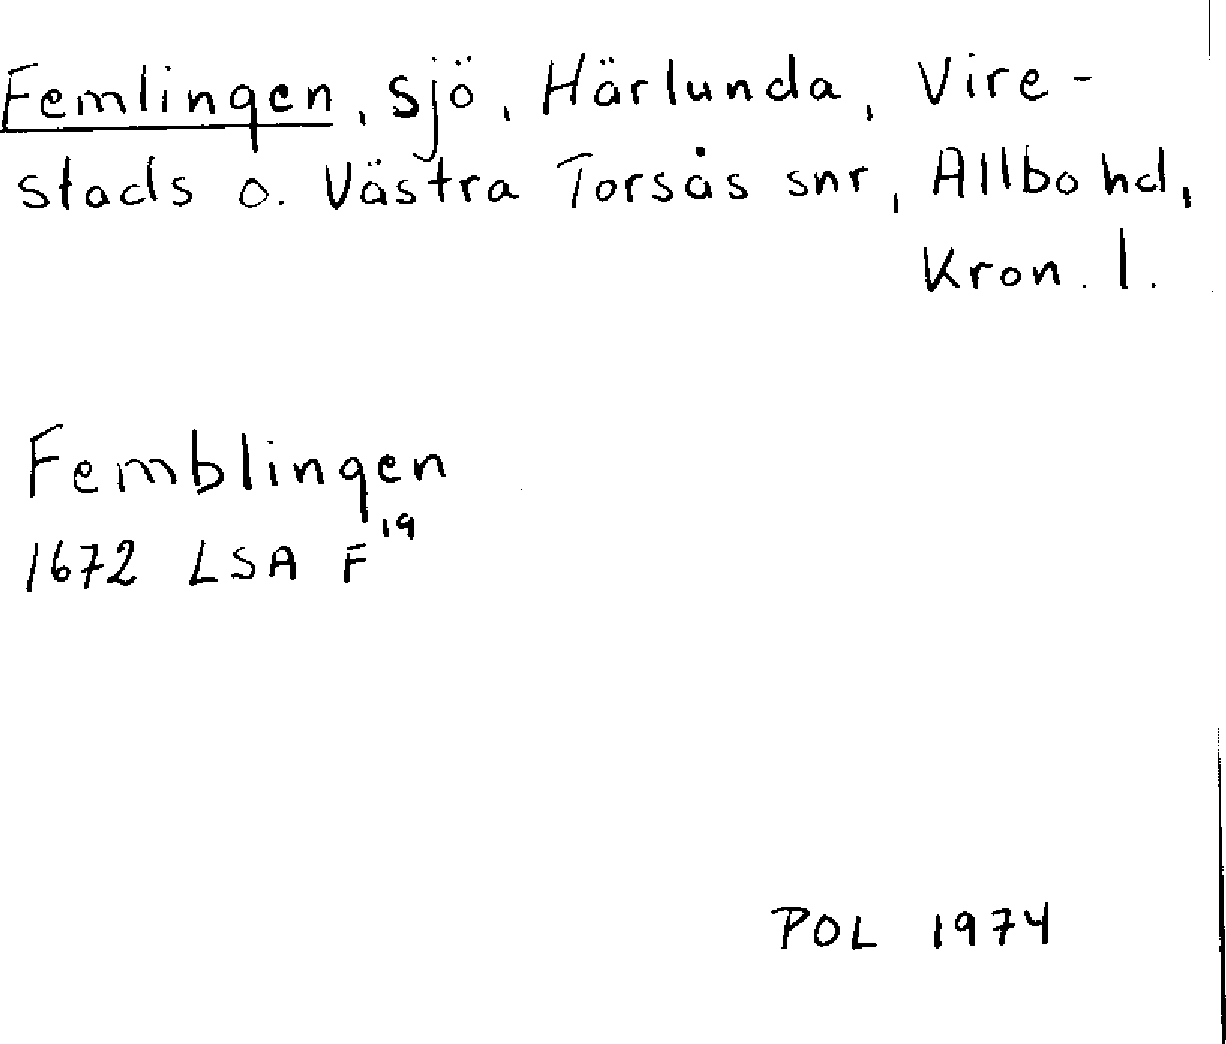 Femlingen, sjö, Härlunda, Vire-
stads o. Västra Torsås snr, Allbo hd,
Kron. l.
Femblingen
1672 LSA F 19
POL 1974